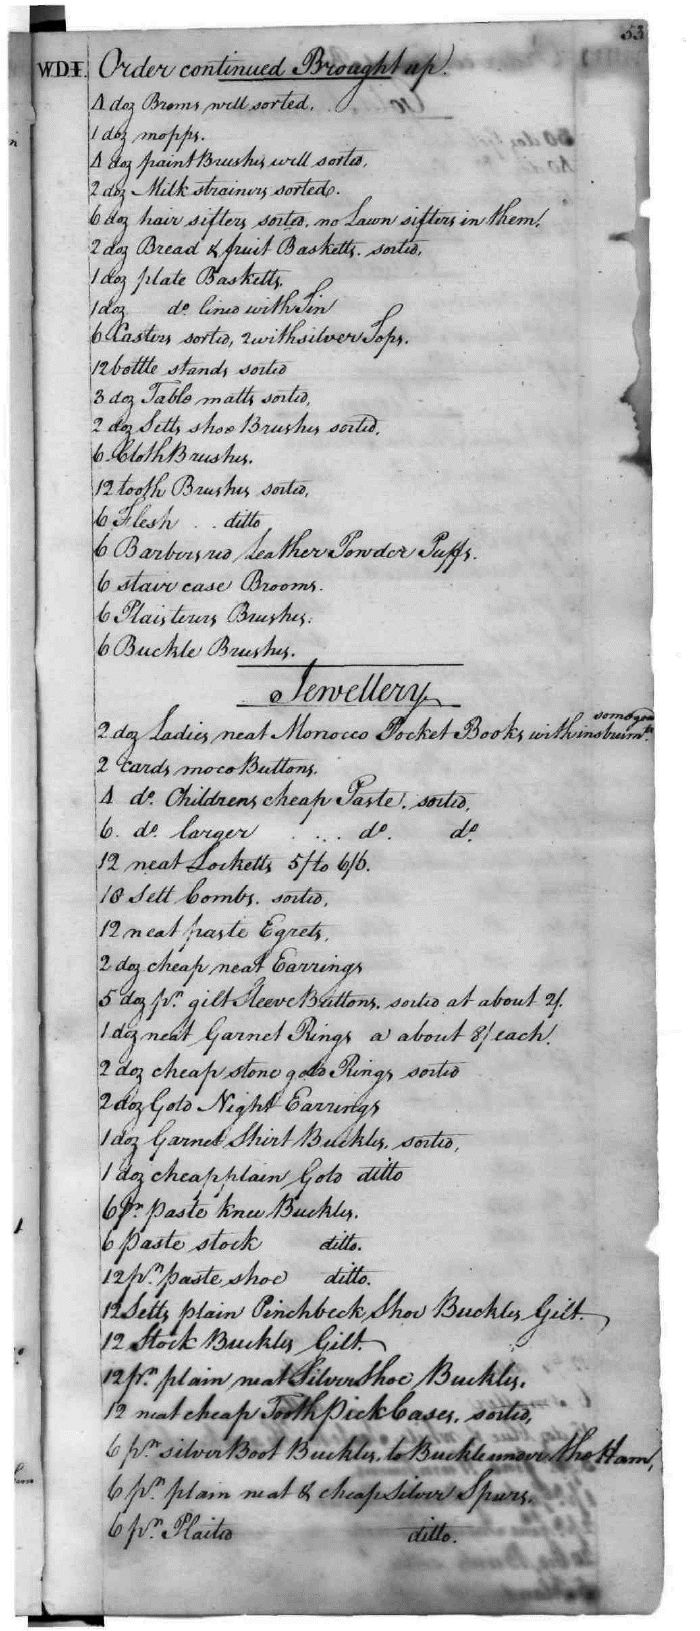 53
W.D.I. Order continued Brought up.
4 doz Broms well sorted.
1 doz mopps.
4 doz paint Brushes well sorted.
2 doz Milk strainers sorted.
6 doz hair sifters sorted. no Lawn sifters in them.
2 doz Bread & fruit Basketts. sorted,
1 doz plate Basketts,
1 doz do. lined with Tin
6 Casters sorted, 2 with silver Tops.
12 bottle stands sorted
3 doz Table matts sorted,
2 doz Setts shoe Brushes sorted.
6 Cloth Brushes.
12 tooth Brushes sorted,
6 Flesh . . ditto
6 Barbers red Leather Powder Puffs.
6 stair case Brooms.
6 Plaisterers Brushes.
6 Buckle Brushes.
Jewellery
2 doz Ladies neat Morocco Pocket Books with instrumts.
2 cards moco Buttons.
4 do. Childrens cheap Paste. sorted,
6. do. larger . ... do. do.
12 neat Locketts 5/ to 6/6.
18 Sett Combs. sorted,
12 neat paste Egrets,
2 doz cheap neat Earrings
5 doz pr. gilt Sleeve Buttons. sorted at about 2/.
1 doz neat Garnet Rings a about 8/ each.
2 doz cheap stone gold Rings sorted
2 doz Gold Night Earrings
1 doz Garnet Shirt Buckles. sorted,
1 doz cheap plain Gold ditto
6 pr. paste knee Buckles.
6 paste stock ditto.
12 pr. paste shoe ditto.
12 Setts plain Pinchbeck Shoe Buckles Gilt.
12 Stock Buckles Gilt.
12 pr. plain neat Silver Shoe Buckles.
12 neat cheap Tooth Pick Cases. sorted,
6 pr. silver Boot Buckles, to Buckle under the Ham,
6 pr. plain neat & cheap silver Spurs.
6 pr. Plaited ditto.